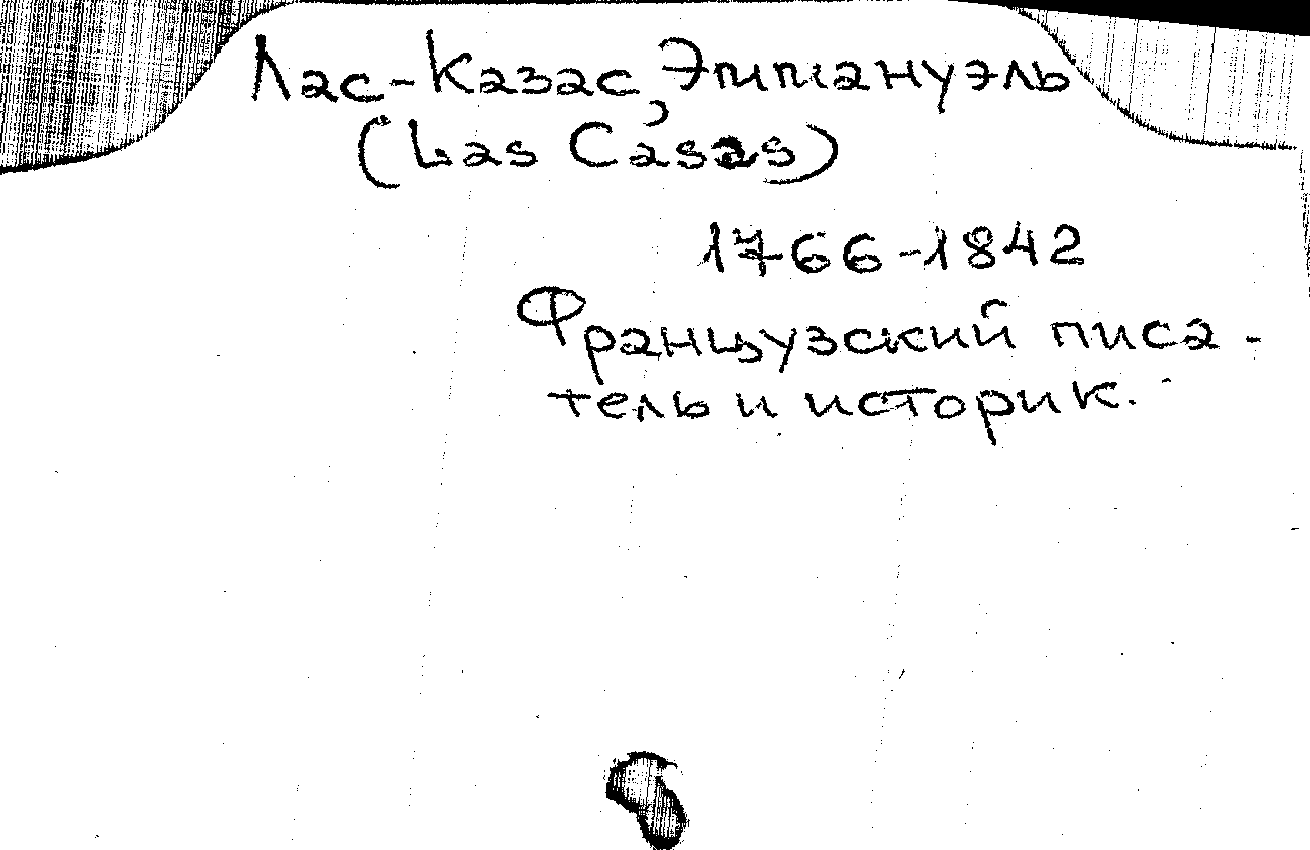 Лас-Казас, Эммануэль
(Las Casas)
1766-1842
Французский писа-
тель и историк.